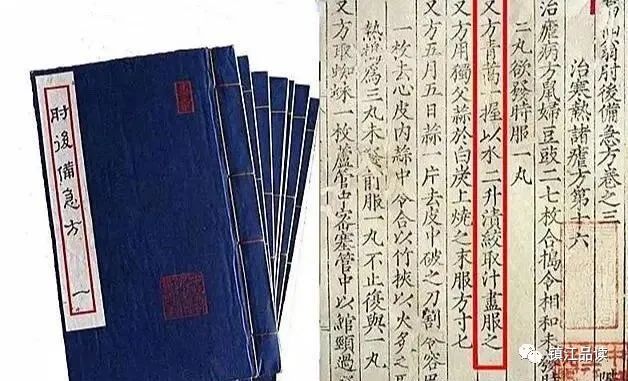 肘後備急方
一
肘後備急方卷之三
治寒熱諸瘧方第十六
治瘧病方鼠婦豆豉二七枚合搗令相和未發時服
二丸欲發時服一丸
又方青蒿一握以水二升漬絞取汁盡服之
又方用獨父蒜於白炭上燒之末服方寸匕
又方五月五日蒜一片去皮中破之刀割令容巴豆
一枚去心皮內蒜中令合以竹挾以火炙之
熱搗為三丸未發前服一丸不止復與一丸
又方取蜘蛛一枚蘆管中密塞管中以綰頸過
鎮江品读